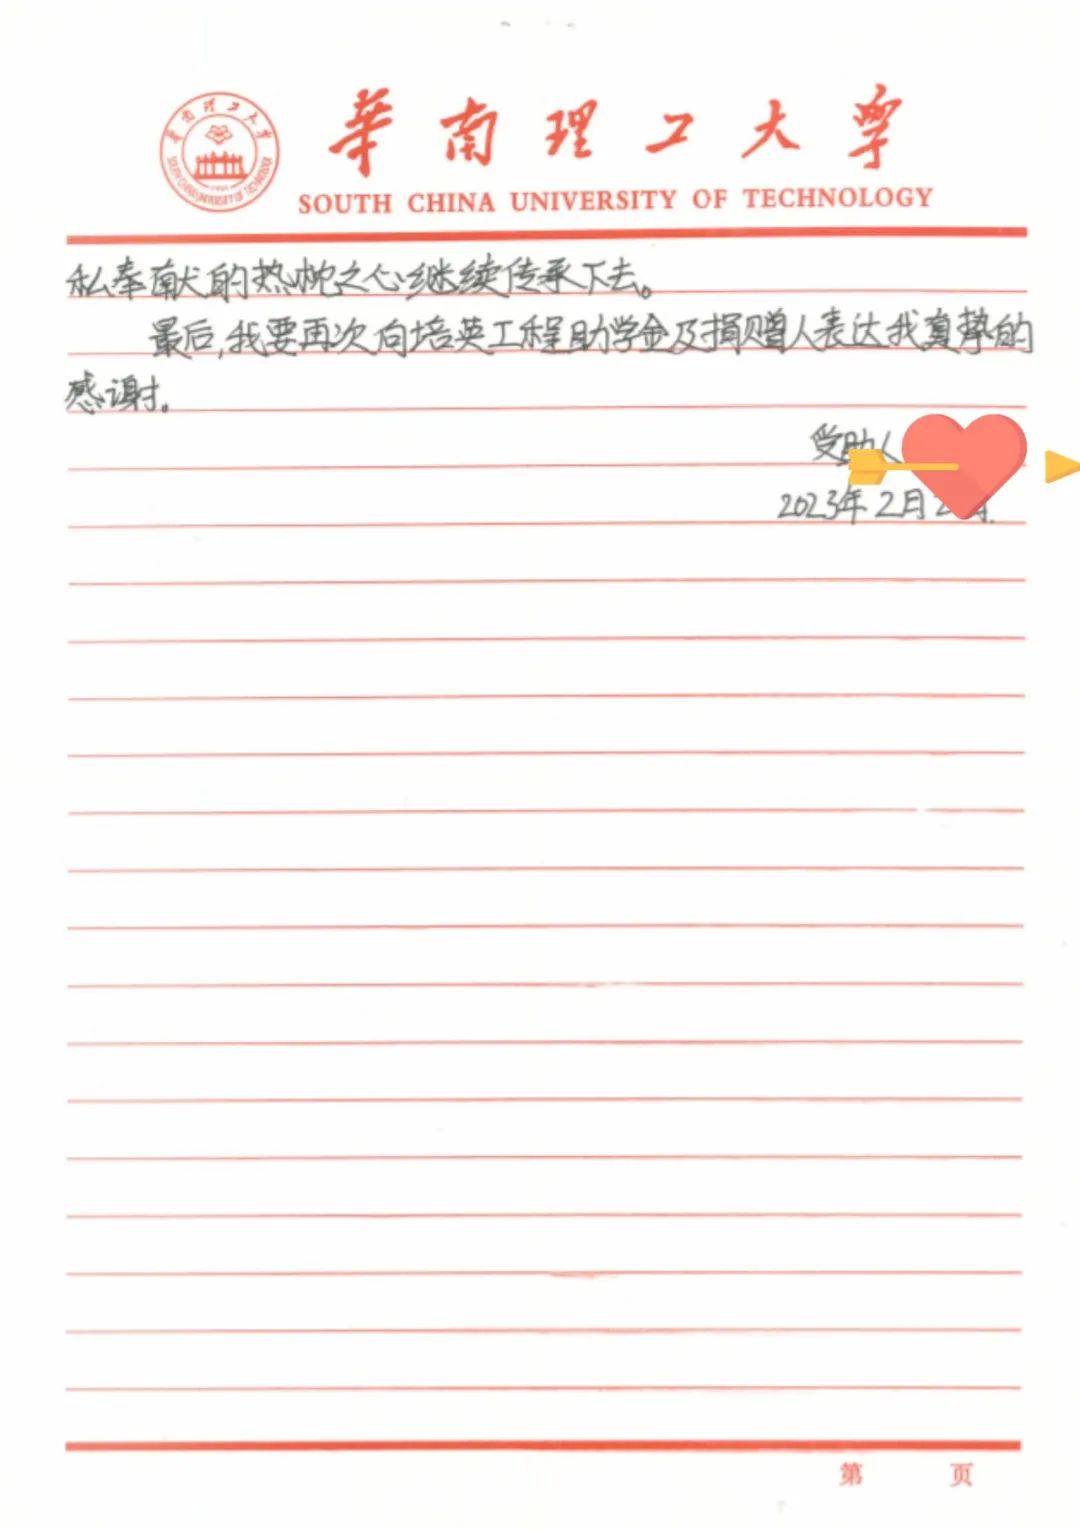 華南理工大学
SOUTH CHINA UNIVERSITY OF TECHNOLOGY
私奉献的热忱之心继续传承下去。
最后,我要再次向培英工程助学金及捐赠人表达我真挚的
感谢。
受助人
2023年2月2
第 页